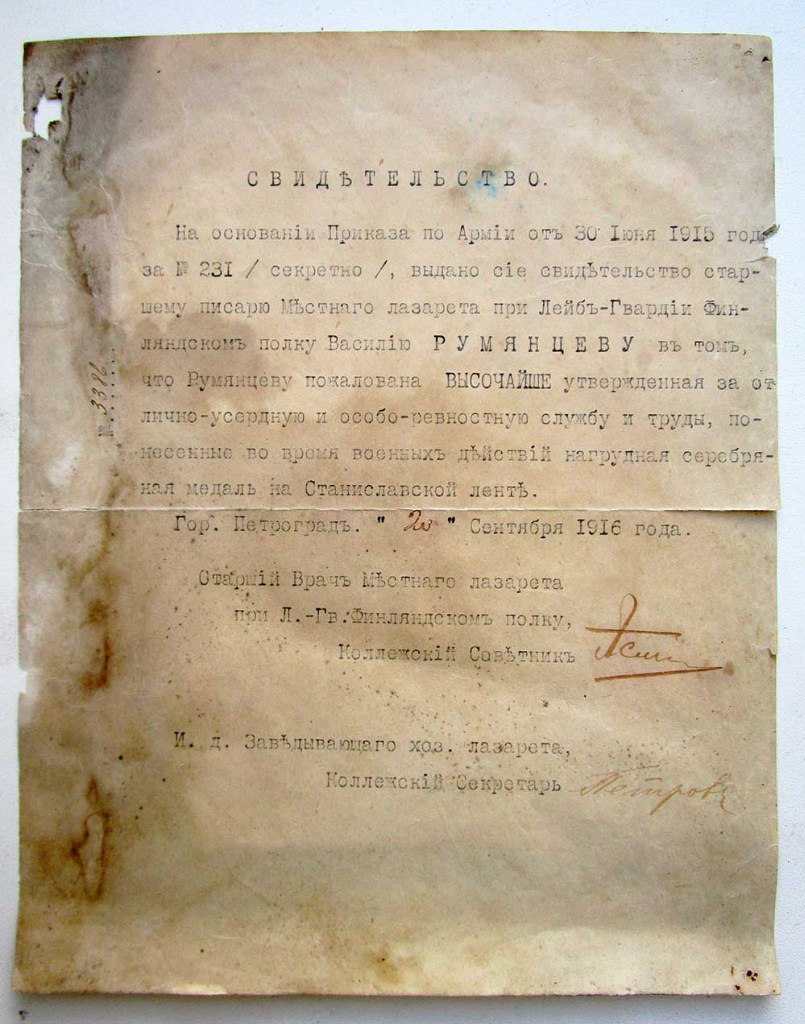 СВИДѢТЕЛЬСТВО.
На основаніи Приказа по Арміи отъ 30 Іюня 1915 год
за № 231 / секретно /, выдано сіе свидѣтельство стар-
шему писарю Мѣстнаго лазарета при Лейбъ-Гвардіи Фин-
ляндскомъ полку Василію РУМЯНЦЕВУ въ томъ,
что Румянцеву пожалована ВЫСОЧАЙШЕ утвержденная за от
лично-усердную и особо-ревностную службу и труды, по-
несенные во время военныхъ дѣйствій нагрудная серебря-
ная медаль на Станиславской лентѣ.
Гор. Петроградъ. " " Сентября 1916 года.
Старшій Врачъ Мѣстнаго лазарета
при Л.-Гв.Финляндскомъ полку,
Коллежскій Совѣтникъ
И. д. Завѣдывающаго хоз. лазарета,
Коллежскій Секретарь Петровъ
№ 3386